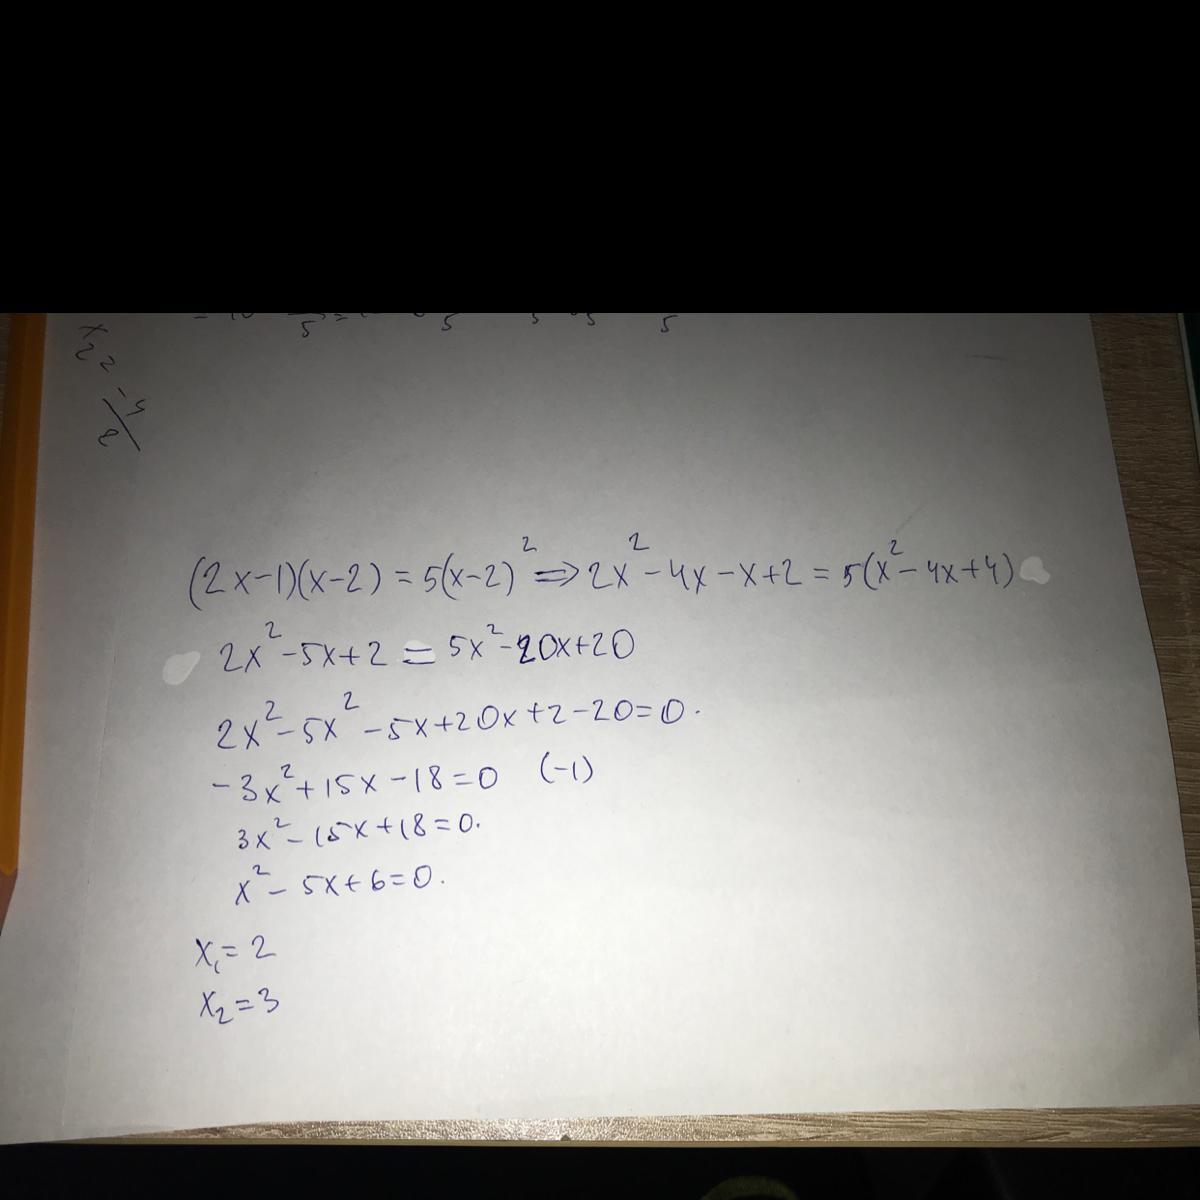 (2x-1)(x-2) = 5(x-2)² ⇒ 2x² - 4x - x + 2 = 5(x² - 4x + 4)
2x² - 5x + 2 = 5x² - 20x + 20
2x² - 5x² - 5x + 20x + 2 - 20 = 0.
-3x² + 15x - 18 = 0 (-1)
3x² - 15x + 18 = 0.
x² - 5x + 6 = 0.
x₁ = 2
x₂ = 3